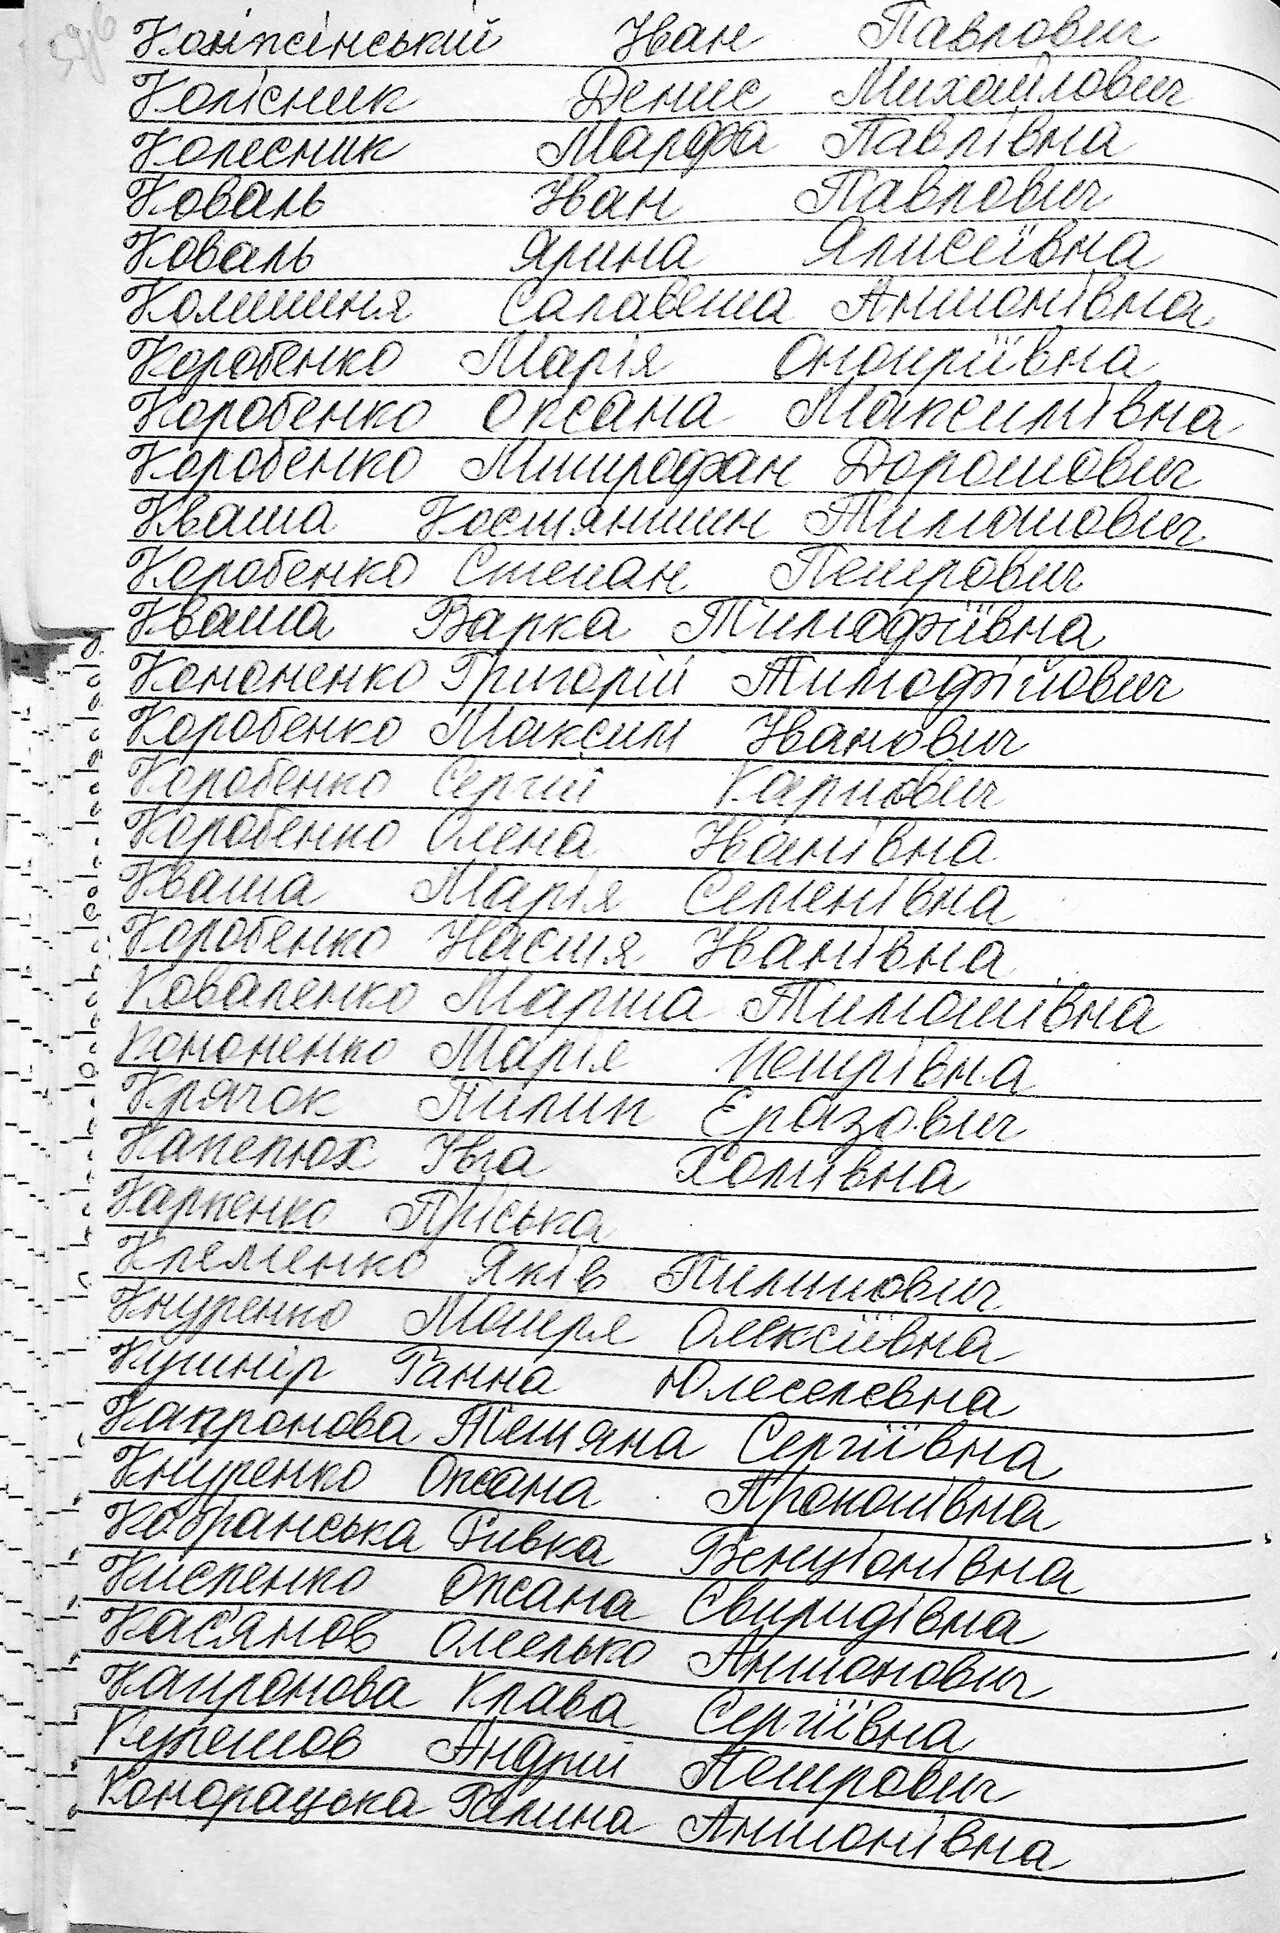 Коніжсінський Іван Павлович
Колісник Денис Михайлович
Колесник Марфа Павлівна
Коваль Іван Павлович
Коваль Ярина Ялисеївна
Комишня Салавета Антонівна
Коробенко Марія Онопріївна
Коробенко Оксана Максимівна
Коробенко Митрофан Дорошович
Кваша Костянтин Тимошович
Коробенко Степан Петрович
Кваша Варка Тимофіївна
Кононенко Григорій Тимофійович
Коробенко Максим Іванович
Коробенко Сергій Карпович
Коробенко Олена Іванівна
Кваша Марія Семенівна
Коробенко Настя Іванівна
Коваленко Марта Тимошівна
Кононенко Марія Петрівна
Крячок Пилип Еразович
Капелюх Івга Хомівна
Карпенко Пріська
Кременко Яків Пилипович
Кнуренко Мотря Олексіївна
Кушнір Ганна
Капронова Тетяна Сергіївна
Кнуренко Оксана Прокопівна
Кобранська Ривка Бенціонівна
Кисленко Оксана Свиридівна
Кас'янов Омелько Антонович
Капронова Клава Сергіївна
Андрій Петрович
Кондрацька Галина Антонівна